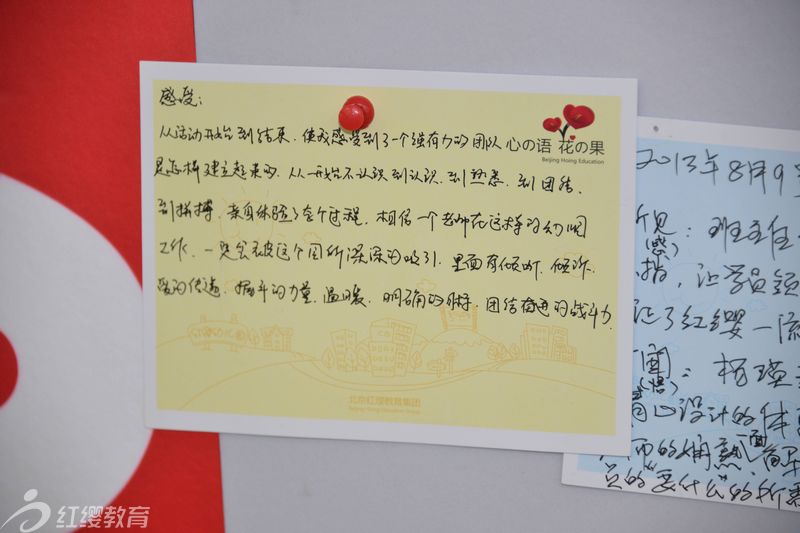 感受：
从活动开始到结束，使我感受到了一个强有力的团队
是怎样建立起来的，从一开始不认识到认识，到熟悉，到团结，
到拼搏，亲身体验了全个过程，相信一个老师在这样的幼儿园
工作，一定会被这个园所深深的吸引，里面有倾听，倾诉，
爱的传递，奋斗的力量，温暖，明确的目标，团结奋进的战斗力
心の语 花の果
Beijing Hoing Education
北京红缨教育集团
Beijing Hoing Education Group
2013年8月9
见：班主任
(感)
指，让学员领
让了红缨一流
(悟)
心设计的体
而的娴熟
员的要什么的所
红缨教育